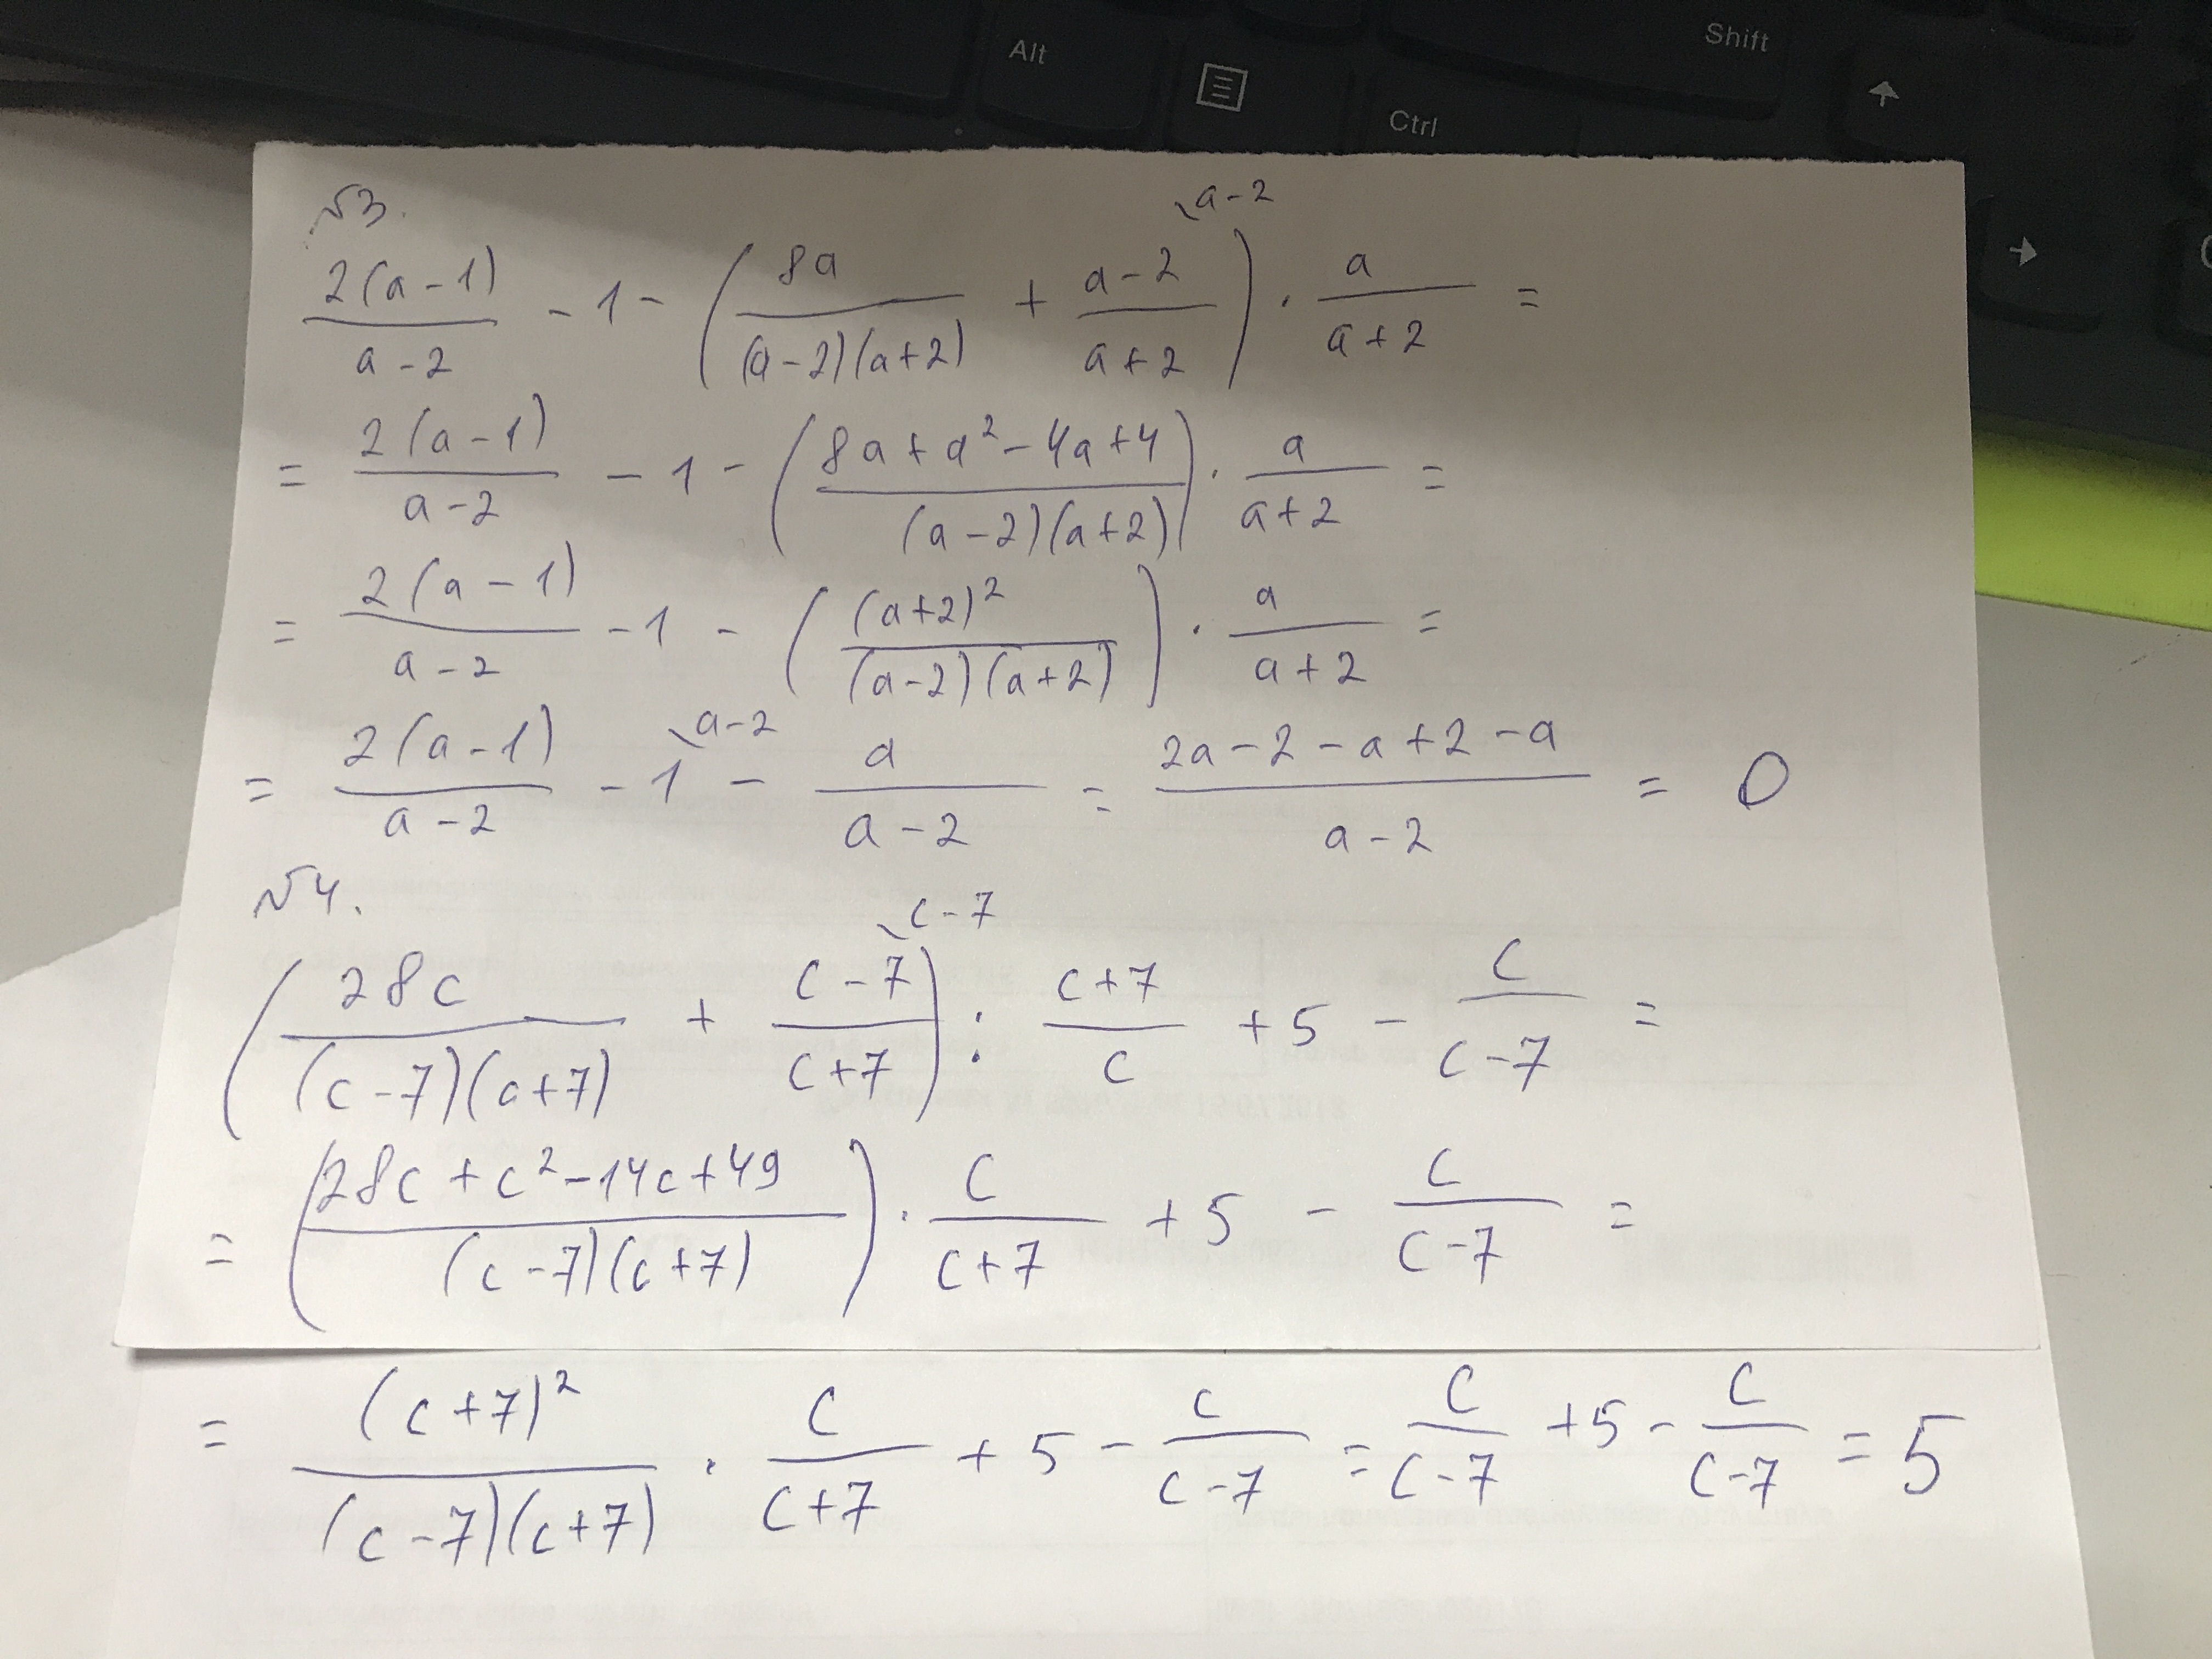 Alt
Shift
Ctrl
№3.
\a-2
2(a-1)/(a-2) - 1 - (8a/((a-2)(a+2)) + (a-2)/(a+2)) · a/(a+2) =
= 2(a-1)/(a-2) - 1 - ((8a+a²-4a+4)/((a-2)(a+2))) · a/(a+2) =
= 2(a-1)/(a-2) - 1 - ((a+2)²/((a-2)(a+2))) · a/(a+2) =
\a-2
= 2(a-1)/(a-2) - 1 - a/(a-2) = (2a-2-a+2-a)/(a-2) = 0
№4.
\c-7
(28c/((c-7)(c+7)) + (c-7)/(c+7)) : (c+7)/c + 5 - c/(c-7) =
= ((28c+c²-14c+49)/((c-7)(c+7))) · c/(c+7) + 5 - c/(c-7) =
= (c+7)²/((c-7)(c+7)) · c/(c+7) + 5 - c/(c-7) = c/(c-7) + 5 - c/(c-7) = 5